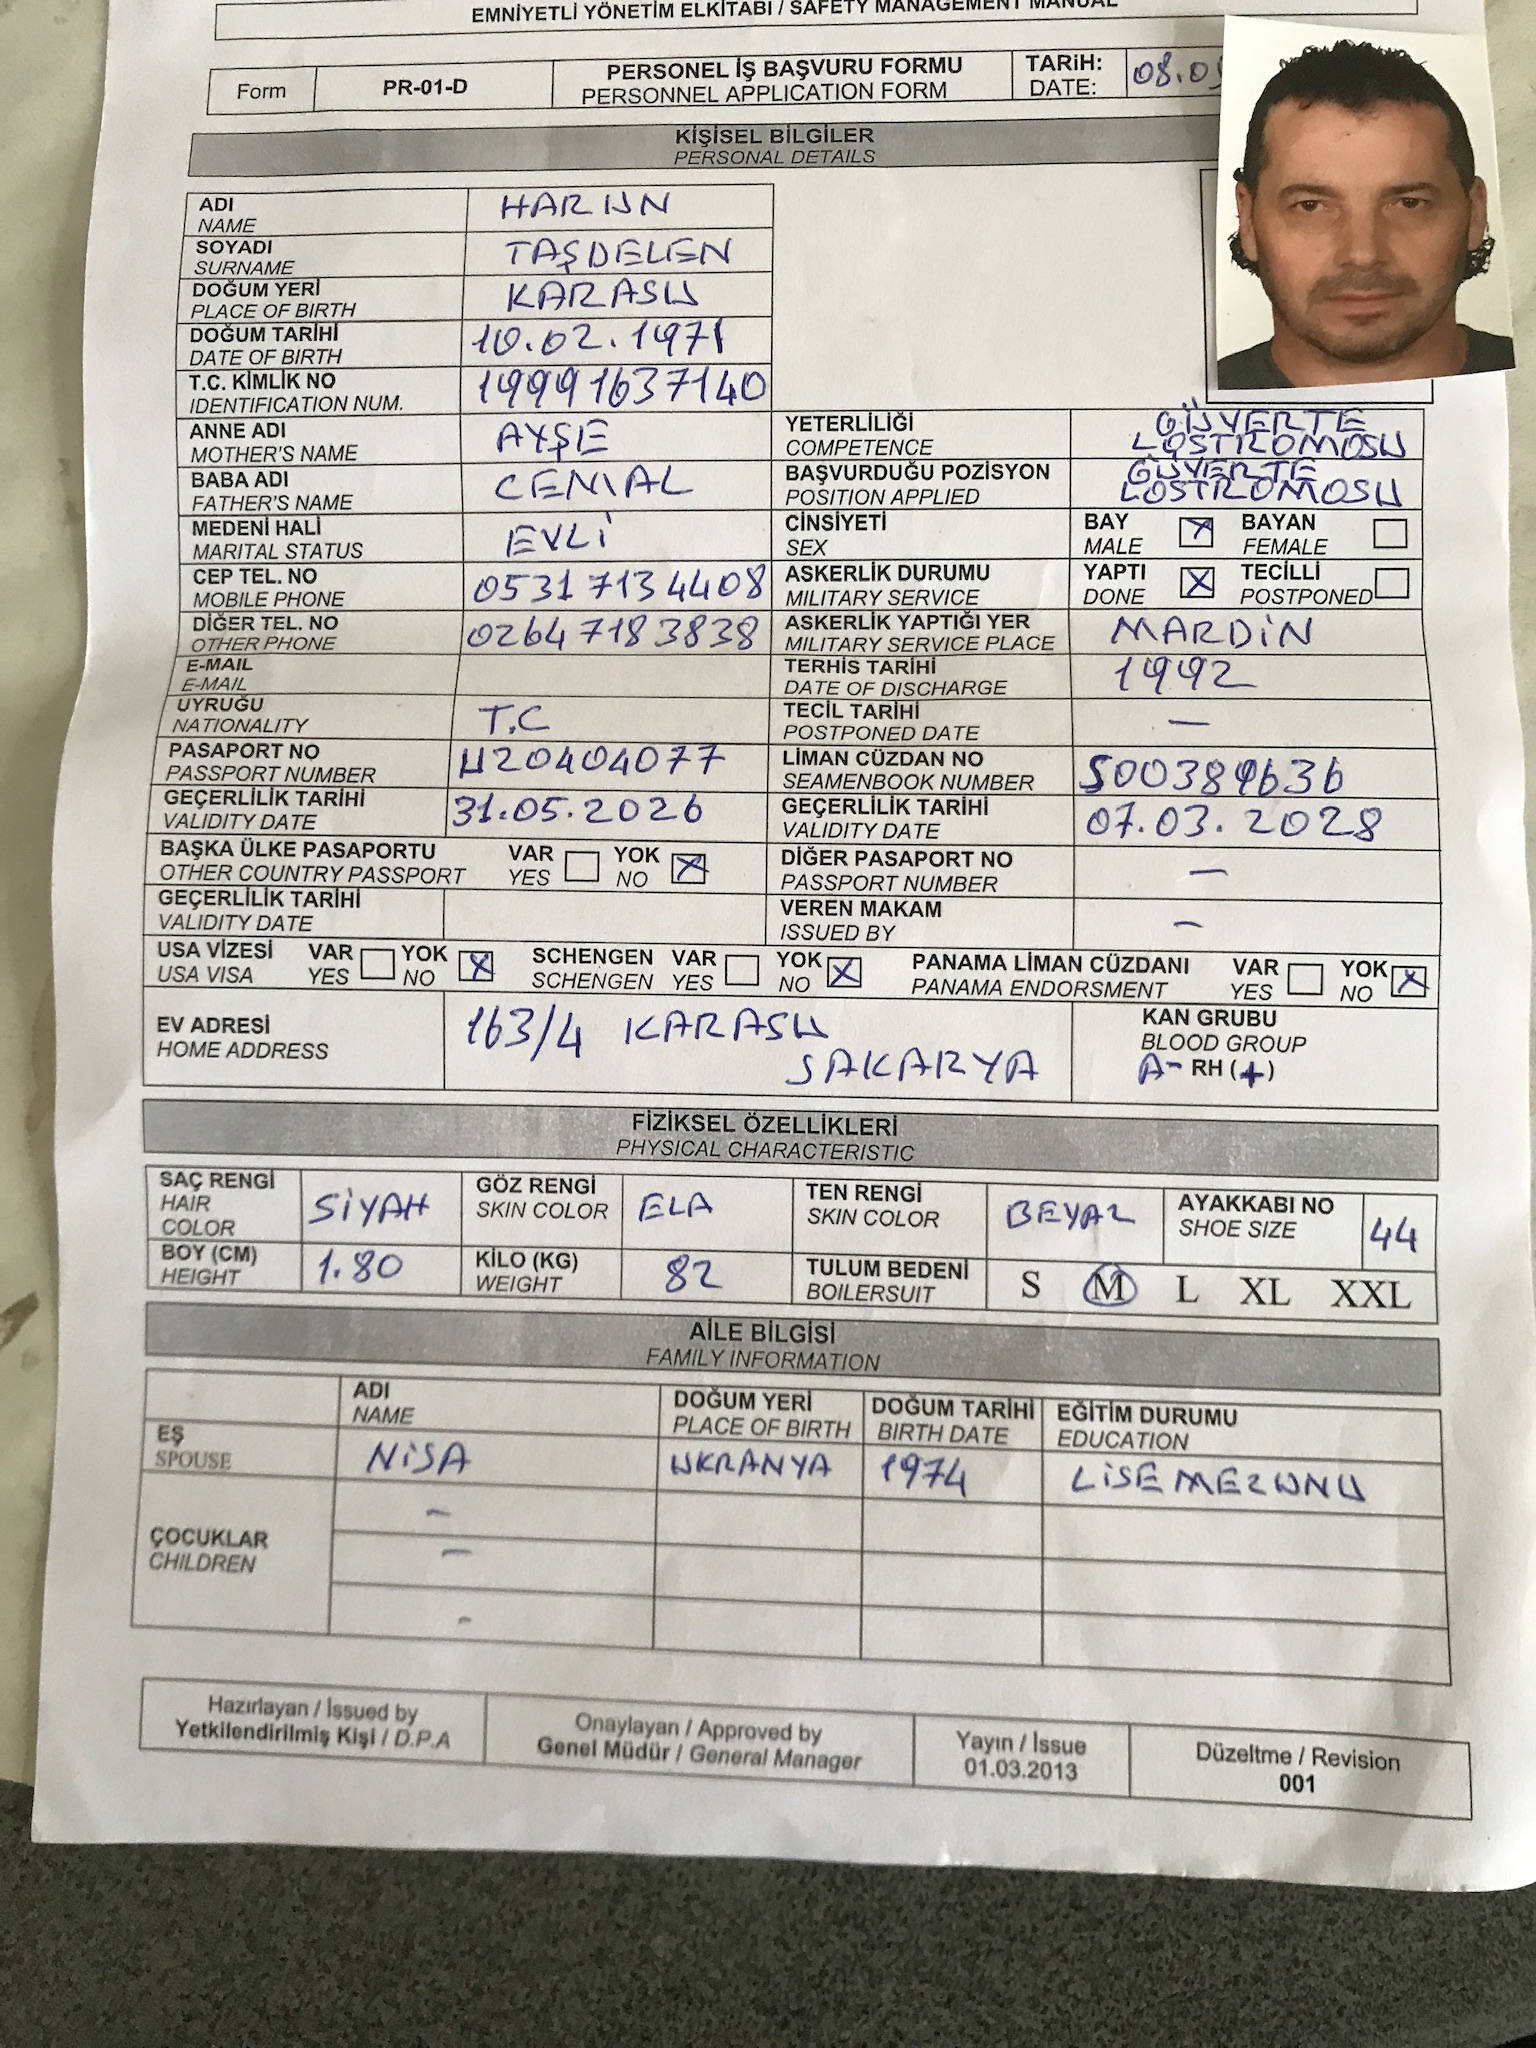 EMNİYETLİ YÖNETİM ELKİTABI / SAFETY MANAGEMENT MANUAL
Form PR-01-D PERSONEL İŞ BAŞVURU FORMU TARİH:
PERSONNEL APPLICATION FORM DATE: 08.0
KİŞİSEL BİLGİLER
PERSONAL DETAILS
ADI HARUN
NAME
SOYADI TAŞDELEN
SURNAME
DOĞUM YERİ KARASU
PLACE OF BIRTH
DOĞUM TARİHİ 10.02.1971
DATE OF BIRTH
T.C. KİMLİK NO 19991637140
IDENTIFICATION NUM.
ANNE ADI AYŞE YETERLİLİĞİ GÜVERTE
MOTHER'S NAME COMPETENCE LOSTROMOSU
BABA ADI CEMAL BAŞVURDUĞU POZİSYON GÜVERTE
FATHER'S NAME POSITION APPLIED LOSTROMOSU
MEDENİ HALİ EVLİ CİNSİYETİ BAY X BAYAN
MARITAL STATUS SEX MALE FEMALE
CEP TEL. NO 0531 713 4408 ASKERLİK DURUMU YAPTI X TECİLLİ
MOBILE PHONE MILITARY SERVICE DONE POSTPONED
DİĞER TEL. NO 0264 718 3838 ASKERLİK YAPTIĞI YER MARDİN
OTHER PHONE MILITARY SERVICE PLACE
E-MAIL TERHİS TARİHİ 1992
E-MAIL DATE OF DISCHARGE
UYRUĞU T.C TECİL TARİHİ —
NATIONALITY POSTPONED DATE
PASAPORT NO U20404077 LİMAN CÜZDAN NO S00389636
PASSPORT NUMBER SEAMENBOOK NUMBER
GEÇERLİLİK TARİHİ 31.05.2026 GEÇERLİLİK TARİHİ 07.03.2028
VALIDITY DATE VALIDITY DATE
BAŞKA ÜLKE PASAPORTU VAR YOK X DİĞER PASAPORT NO —
OTHER COUNTRY PASSPORT YES NO PASSPORT NUMBER
GEÇERLİLİK TARİHİ VEREN MAKAM —
VALIDITY DATE ISSUED BY
USA VİZESİ VAR YOK X SCHENGEN VAR YOK X PANAMA LİMAN CÜZDANI VAR YOK X
USA VISA YES NO SCHENGEN YES NO PANAMA ENDORSMENT YES NO
EV ADRESİ 163/4 KARASU KAN GRUBU
HOME ADDRESS SAKARYA BLOOD GROUP
A- RH (+)
FİZİKSEL ÖZELLİKLERİ
PHYSICAL CHARACTERISTIC
SAÇ RENGİ SİYAH GÖZ RENGİ ELA TEN RENGİ BEYAZ AYAKKABI NO 44
HAIR SKIN COLOR SKIN COLOR SHOE SIZE
COLOR
BOY (CM) 1.80 KİLO (KG) 82 TULUM BEDENİ S M L XL XXL
HEIGHT WEIGHT BOILERSUIT
AİLE BİLGİSİ
FAMILY INFORMATION
ADI DOĞUM YERİ DOĞUM TARİHİ EĞİTİM DURUMU
NAME PLACE OF BIRTH BIRTH DATE EDUCATION
EŞ NİSA UKRANYA 1974 LİSE MEZUNU
SPOUSE
—
ÇOCUKLAR —
CHILDREN
-
Hazırlayan / Issued by Onaylayan / Approved by Yayın / Issue Düzeltme / Revision
Yetkilendirilmiş Kişi / D.P.A Genel Müdür / General Manager 01.03.2013 001